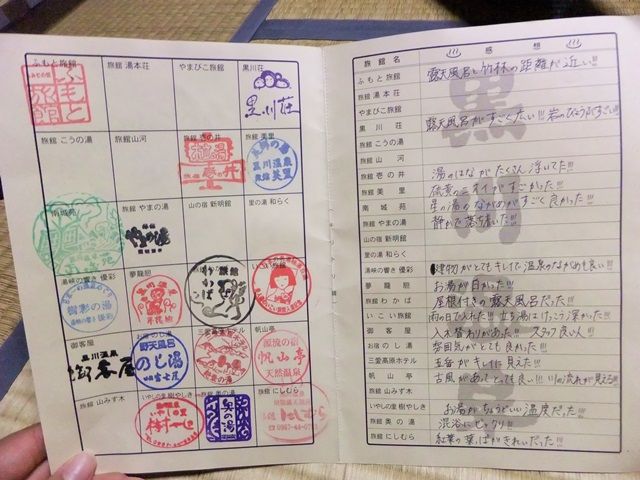 ふもと旅館
旅館 湯本荘
やまびこ旅館
黒川荘
ふもと旅館
黒川荘
旅館 こうの湯
旅館 山河
旅館 壱の井
旅館 美里
黒川温泉
美里
南城苑
旅館 やまの湯
山の宿 新明館
里の湯 和らく
湯峡の響き 優彩
夢龍胆
旅館
わかば
樹彩の湯
御客屋
お宿 のし湯
三愛高原ホテル
帆山亭
黒川温泉
御客屋
露天風呂
のし湯
源流の宿
帆山亭
天然温泉
旅館 山みず木
いやしの里 樹やしき
旅館 奥の湯
旅館 にしむら
いやしの里
樹やしき
奥の湯
にしむら
0967-44-0753
旅館名
感想
ふもと旅館 露天風呂と竹林の距離が近い!!
旅館 湯本荘
やまびこ旅館
黒川荘 露天風呂がすごく広い!!岩のびょうぶすごい!!!
旅館 こうの湯
旅館 山河
旅館 壱の井 湯のはながたくさん浮いてた!!!
旅館 美里
南城苑 星の湯のながめがすごく良かった!!!
旅館 やまの湯 静かで落ち着いた!!!
山の宿 新明館
里の湯 和らく
湯峡の響き 優彩 建物がとてもキレイで温泉のながめも良い!!!
夢龍胆 お湯が白かった!!!
旅館 わかば 屋根付きの露天風呂だった!!!
いこい旅館 雨の日で入れた!!立ち湯はけっこう深かった!!!
御客屋 入れ替わりがあった!! スタッフ良い人!!!
お宿 のし湯 雰囲気がとても良かった!!!
三愛高原ホテル 五岳がキレイに見えた!!!
帆山亭 古風があってとても良い!!!川の流れが見える!!!
旅館 山みず木
いやしの里 樹やしき お湯がちょうどいい温度だった!!!
旅館 奥の湯 混浴にビックリ!!!
旅館 にしむら 紅葉の葉っぱがきれいだった!!!
黒川